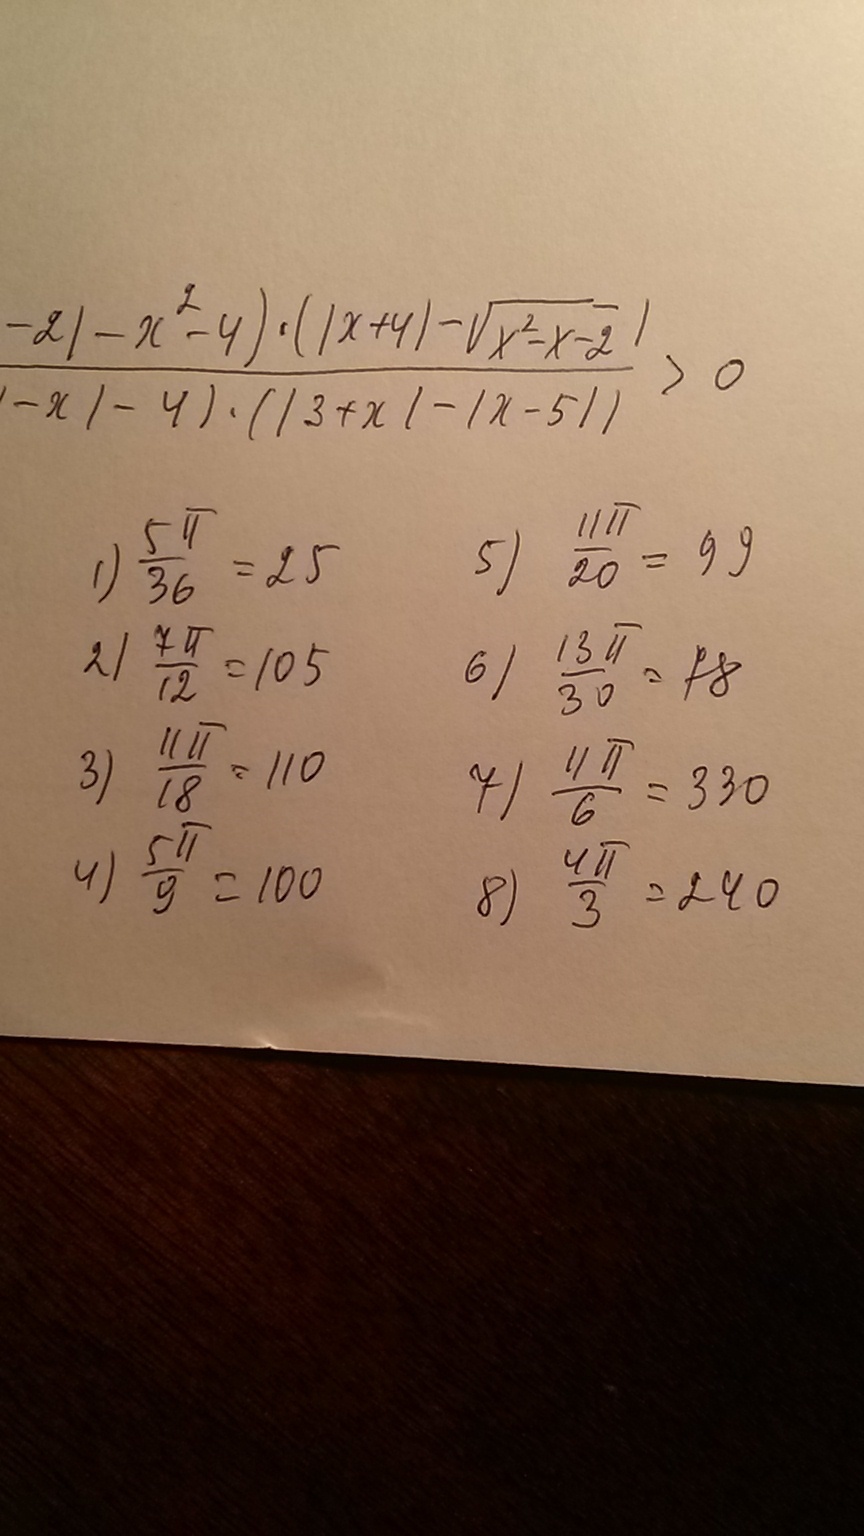 -2|-x²-4)·(|x+4|-√x²-x-2)
-x|-4)·(|3+x|-|x-5|) > 0
1) 5π/36 = 25
2) 7π/12 = 105
3) 11π/18 = 110
4) 5π/9 = 100
5) 11π/20 = 99
6) 13π/30 = 78
7) 11π/6 = 330
8) 4π/3 = 240